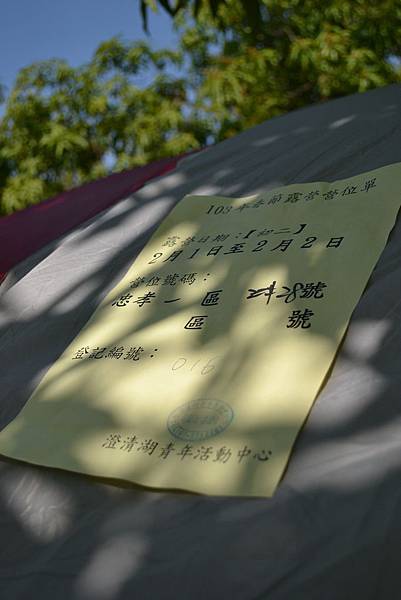 103年春節露營營位單
露營日期:【初二】
2月1日至2月2日
營位號碼:
忠孝一 區 24-28號
區 號
登記編號: 016
澄清湖青年活動中心